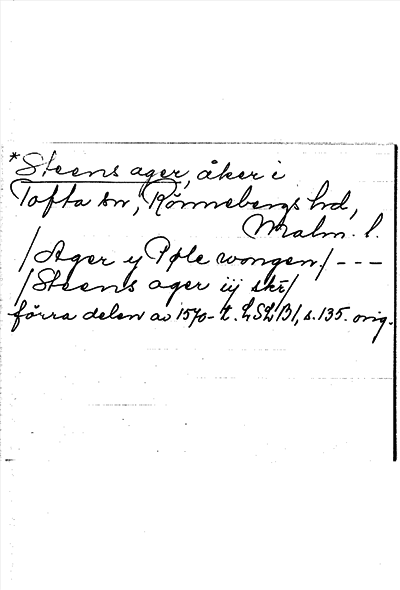 *Steens ager, åker i
Tofta sn, Rönnebergs hd,
Malm. l.
/Ager y Pøle wongen/ ---
/Steens ager iij skr/
förra delen av 1570-t. LSLB1, s. 135. orig.